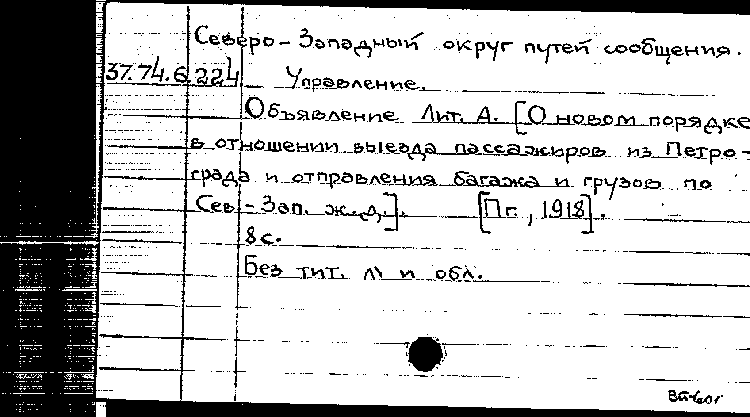 Северо-Западный округ путей сообщения.
37.74.6.224 Управление.
Объявление Лит. А. [О новом порядке
в отношении выезда пассажиров из Петро-
града и отправления багажа и грузов по
Сев-Зап. ж.д.]. [Пг., 1918].
8 с.
Без тит. л и обл.